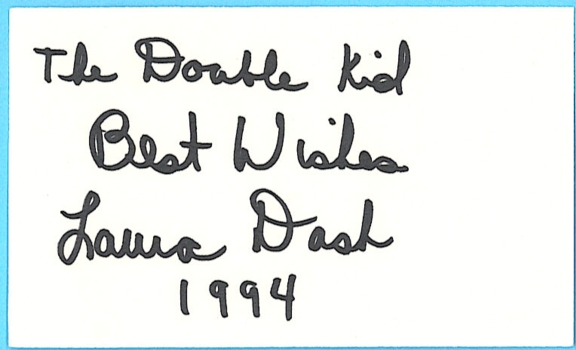 The Double Kid
Best Wishes
Laura Dash
1994